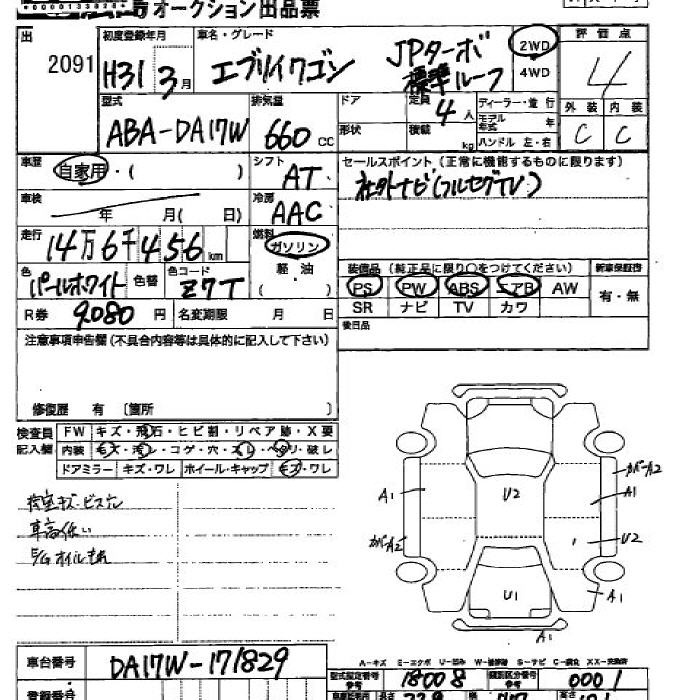 オークション出品票
出 初度登録年月 車名・グレード 評価点
2091 H31 3月 エブリイワゴン JPターボ 標準ルーフ 2WD 4WD 4
型式 排気量 ドア 定員 ディーラー・並行 外装 内装
ABA-DA17W 660 cc 4人 モデル年式 年 C C
形状 積載 kg ハンドル 左・右
車歴 自家用・( ) シフト AT セールスポイント(正常に機能するものに限ります)
車検 年 月( 日) 冷房 AAC 社外ナビ(フルセグTV)
走行 14万6千456km 燃料 ガソリン
色 パールホワイト 色替 色コード Z7T 軽油 ( )
装備品(純正品に限り○をつけてください) 新車保証書
PS PW ABS エアB AW 有・無
SR ナビ TV カワ
R券 9080円 名変期限 月 日 後日品
注意事項申告欄(不具合内容等は具体的に記入して下さい)
修復歴 有 〔箇所 〕
検査員 FW キズ・飛石・ヒビ割・リペア跡・X要
記入欄 内装 キズ・汚レ・コゲ・穴・スレ・ヘタリ・破レ
ドアミラー キズ・ワレ ホイール・キャップ キズ・ワレ
荷室キズ・ビス穴
車高低い
E/Gオイルもれ
カバーA2
A1 U2 A1
カバーA2 U2
U1 A1
A1
A-キズ E-エクボ U-凹み W-補修跡 S-サビ C-腐食 XX-交換済
車台番号 DA17W-171829
型式指定番号 参考 18008 類別区分番号 参考 0001
登録番号